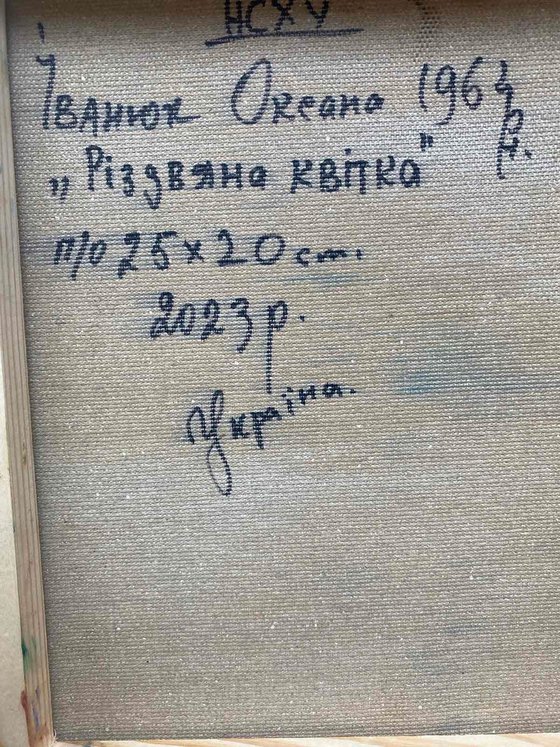 НСХУ
Іванюк Оксана 1964
р.н.
„Різдвяна квітка"
п/о 25х20 cm.
2023 р.
Україна.